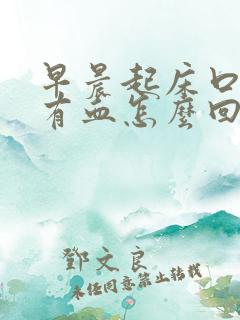 早晨起床口
有血怎麼回
鄧文良
未经同意禁止转载